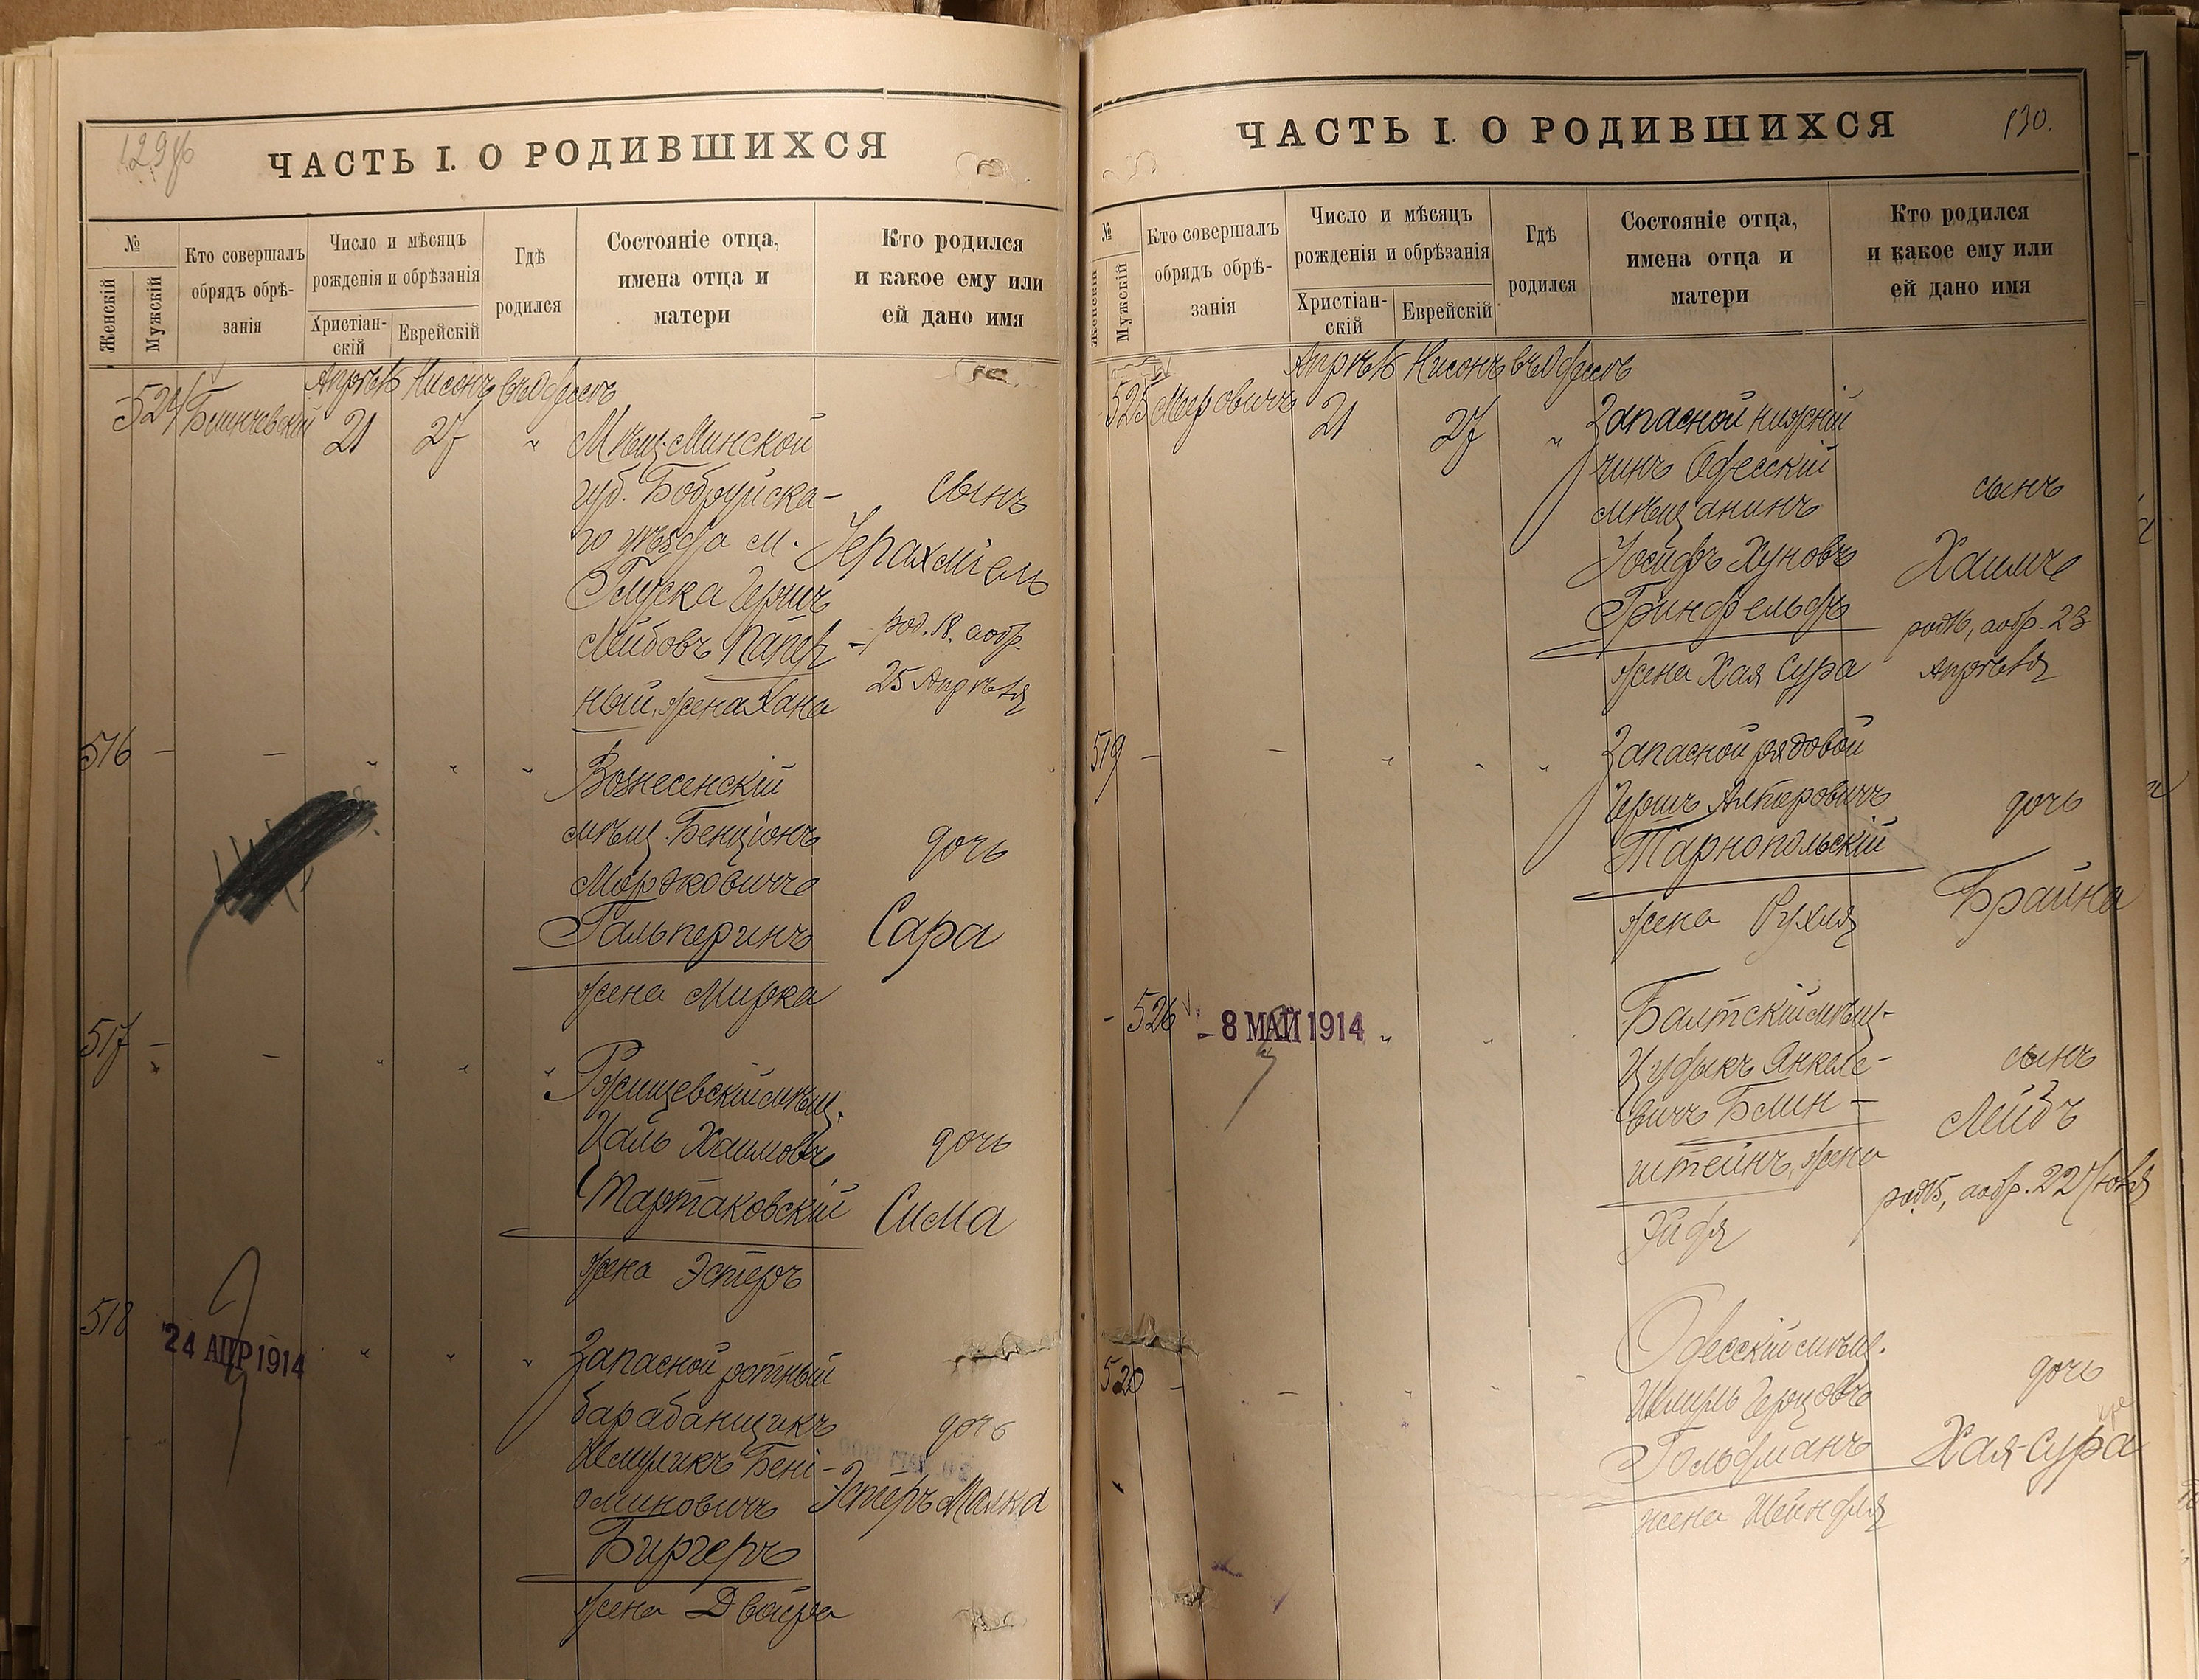 ЧАСТЬ I. О РОДИВШИХСЯ
№
Женскій
Мужскій
Кто совершалъ
обрядъ обрѣ-
занія
Число и мѣсяцъ
рожденія и обрѣзанія
Христіан-
скій
Еврейскій
Гдѣ
родился
Состояніе отца,
имена отца и
матери
Кто родился
и какое ему или
ей дано имя
Апрѣль Нисонъ въ Одессѣ
524 21 27 "
Мѣщ. Минской
губ. Бобруйска-
го уѣзда м.
Глуска Герш
Лейбовъ Папер
ный, жена Хана
сынъ
Іерахміель
род. 18. а обр.
25 Апрѣля
516 — — " " "
Вознесенскій
мѣщ. Бенціонъ
Мордковичъ
Гальперинъ
жена Мирка
дочь
Сара
517 — — " " "
Ржищевскій мѣщ.
Цаль Хаимовъ
Тартаковскій
жена Эстеръ
дочь
Сима
518
24 АПР 1914 " " "
Запасной ротный
барабанщикъ
Шмуликъ Бені-
оминовичъ
Биргеръ
жена Двойра
дочь
Эстеръ Малка
ЧАСТЬ I. О РОДИВШИХСЯ
130.
№
Женскій
Мужскій
Кто совершалъ
обрядъ обрѣ-
занія
Число и мѣсяцъ
рожденія и обрѣзанія
Христіан-
скій
Еврейскій
Гдѣ
родился
Состояніе отца,
имена отца и
матери
Кто родился
и какое ему или
ей дано имя
Апрѣль Нисонъ въ Одессѣ
525 Мееровичъ 21 27 "
Запасной нижній
чинъ Одесскій
мѣщанинъ
Іосифъ Хуновъ
Гринфельдъ
жена Хая Сура
сынъ
Хаимъ
род. 16, а обр. 23
Апрѣля
519 — — " " "
Запасной рядовой
Гершъ Алтеровичъ
Тарнопольскій
жена Рухля
дочь
Брайна
- 526
- 8 МАЙ 1914 " " "
Балтскій мѣщ.
Цудыкъ Янкеле-
вичъ Блин-
штейнъ, жена
Эйдя
сынъ
Лейбъ
род. 15, а обр. 22
520 - - " " "
Одесскій мѣщ.
Шмуль Герцовъ
Гольдманъ
жена Шейндля
дочь
Хая-Сура